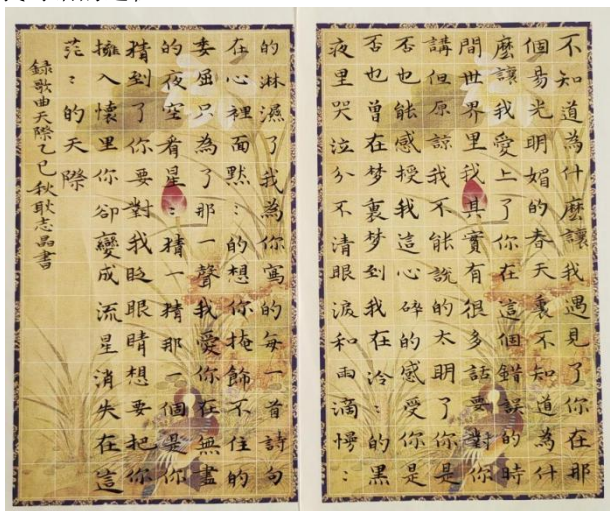 不知道為什麼讓我遇見了你在那
個易光明媚的春天裏不知道為什
麼讓我愛上了你在這個錯誤的時
間世界里我其實有很多話要對你
講但原諒我不能說的太明了你是
否也能感授我這心碎的感受你是
否也曾在梦裏梦到我在泠：的黑
夜里哭泣分不清眼淚和雨滴慢：
的淋濕了我為你寫的每一首詩句
在心裡面默：的想你掩飾不住的
委屈只為了那一聲我愛你在無盡
的夜空看星：猜一猜那一個是你
猜到了你要對我眨眼睛想要把你
擁入懷里你卻變成流星消失在這
茫：的天際
錄歌曲天際乙巳秋耿志昌書